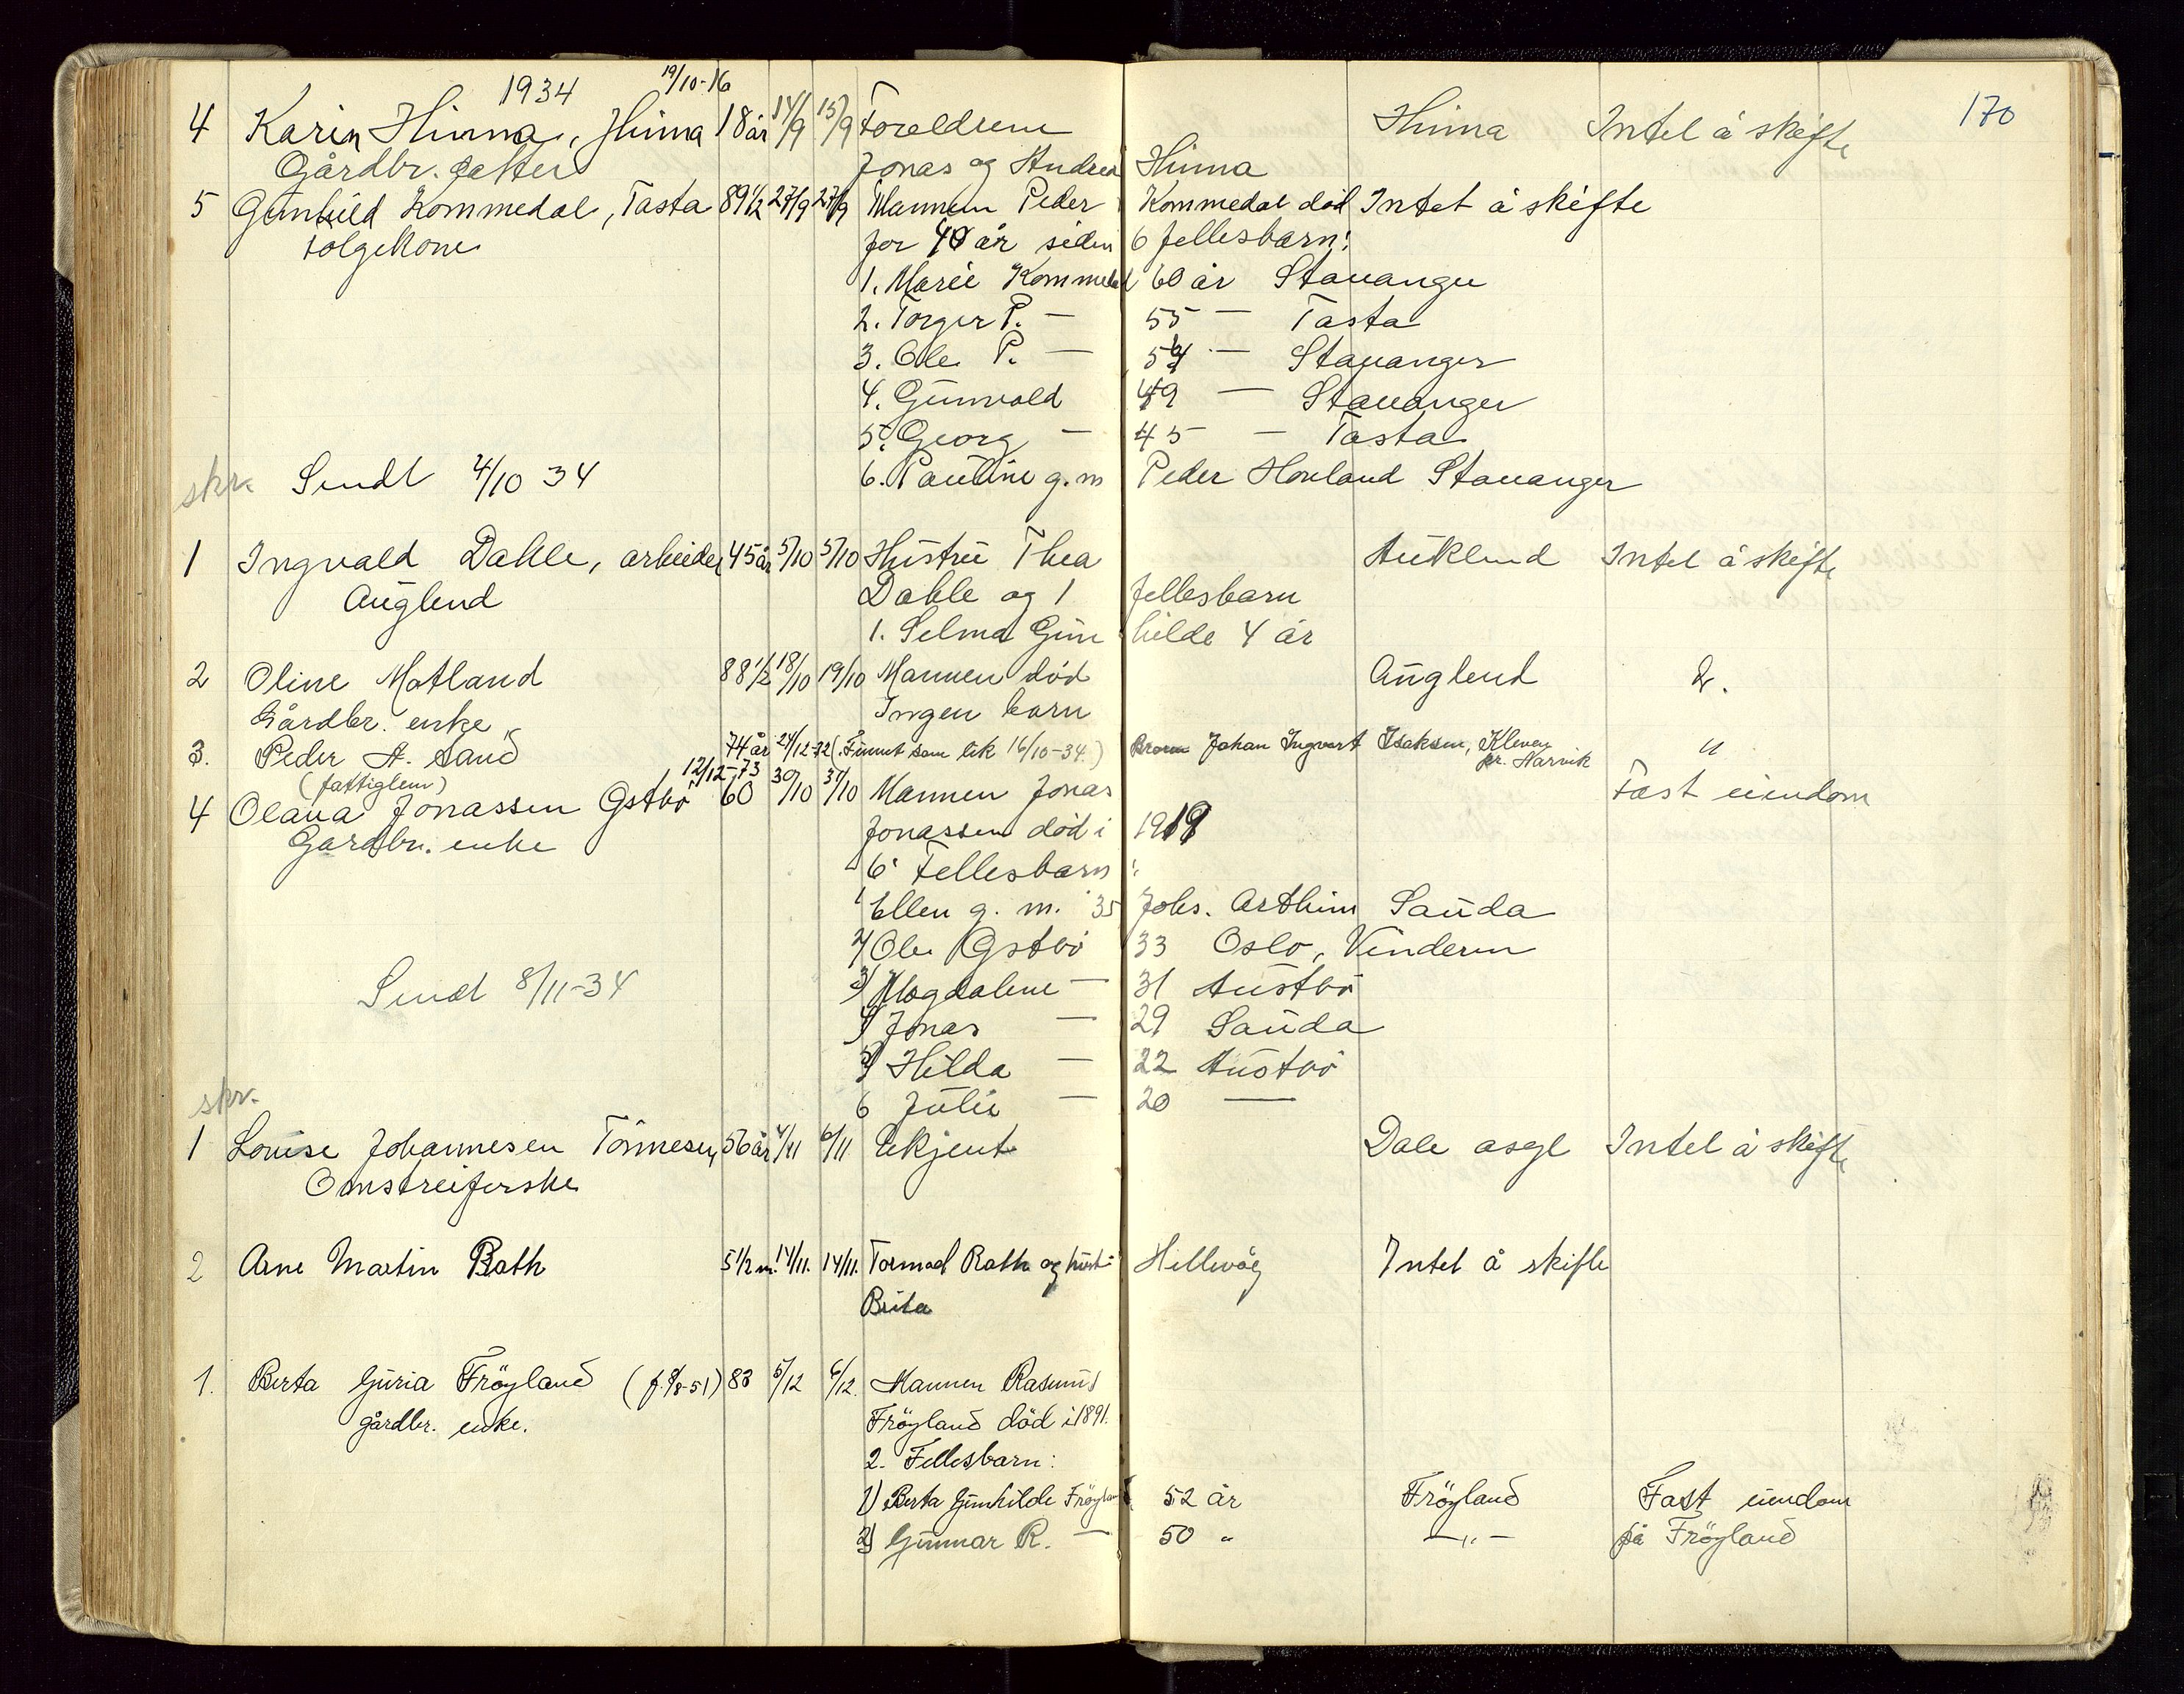 1934 19/10-16
170
4 Karin Hinna, Hinna 18 år 14/9 15/9 Foreldrene Hinna Intet å skifte
Gårdbr. datter Jonas og Andrea Hinna
5 Gunhild Kommedal, Tasta 89 1/2 27/9 27/9 Mannen Peder Kommedal død Intet å skifte
folgekone for 40 år siden 6 fellesbarn:
1. Marie Kommedal 60 år Stavanger
2. Torger P. — 55 — Tasta
3. Ole P. — 54 — Stavanger
4. Gunvald 49 — Stavanger
5. Georg — 45 — Tasta
skr. Sendt 4/10 34 6. Pauline g. m Peder Hovland Stavanger
1 Ingvald Dahle, arbeider 45 år 5/10 5/10 Hustru Thea Auklend Intet å skifte
Auglend Dahle og 1 fellesbarn
1. Selma Gun hilde 4 år
2 Oline Matland 88 1/2 18/10 19/10 Mannen død Auglend D.
Gårdbr. enke Ingen barn
3. Peder A. Sand 74 år 24/12-32 (Funnet som lik 16/10-34.) Broren Johan Ingvart Isaksen, Kleven "
(fattiglem) pr. Narvik
12/12-73
4 Olava Jonassen Gstbø 60 30/10 31/10 Mannen Jonas Fast eiendom
Gardbr. enke Jonassen død i 1919
6 Fellesbarn:
1 Ellen g. m. 35 Johs. Arthim Sauda
2) Ole Gstbø 33 Oslo, Vinderen
3) Magdalene — 31 Austbø
Sendt 8/11-34
4) Jonas — 29 Sauda
5) Hilda — 22 Austbø
skr. 6 Julie — 20 —
1 Louise Johannesen Tönnesen, 56 år 4/11 6/11 Ukjent Dale asyl Intet å skifte
Omstreiferske
2 Arne Martin Rath 5 1/2 m. 14/11. 14/11. Tormod Rath og hust. Hillevåg Intet å skifte
Brita
1. Berta Guria Fröyland (f. 9/8-51) 83 5/12 6/12. Mannen Rasmus
gårdbr. enke. Fröyland död i 1891.
2. Fellesbarn:
1) Berta Gunhilde Fröyland 52 år Fröyland Fast eiendom
2) Gunnar R. — 50 " —"— på Fröyland